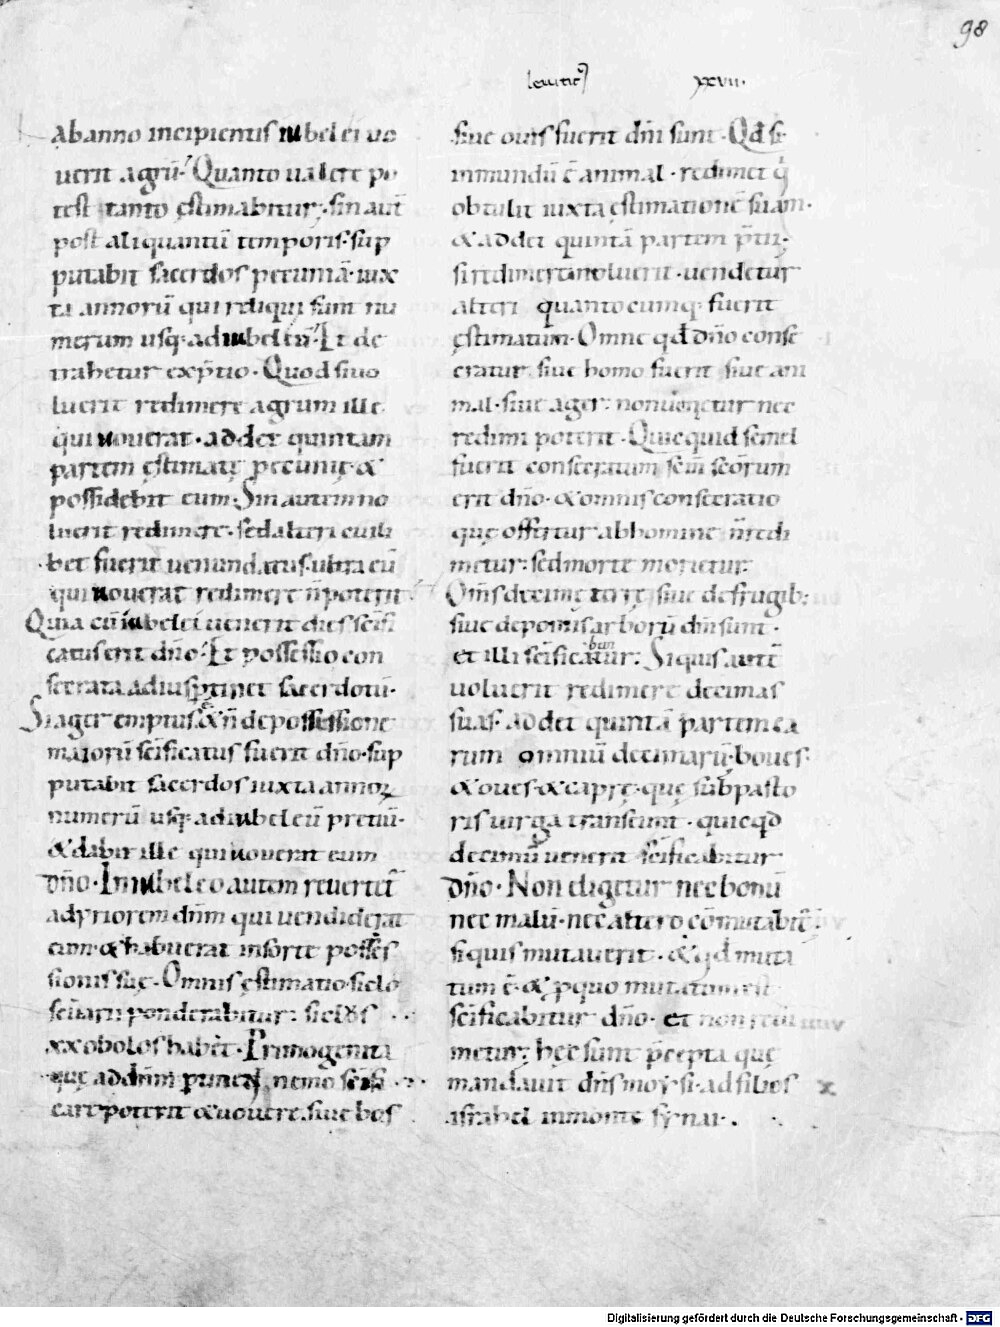 98
leuitic⁹ xxvii.
ab anno incipientis iubelei uo
uerit agrū. Quanto ualere po
test tanto ęstimabitur; sin aūt
post aliquantū temporis. sup
putabit sacerdos pecuniā. iux
ta annorū qui reliqui sunt nu
merum usq; ad iubeleū. Et de
trahetur ex p̄tio. Quod si uo
luerit redimere agrum ille
qui uouerat. addet quintam
partem ęstimatę pecunię. &
possidebit eum. Sin autem no
luerit redimere. sed alteri cuili
bet fuerit uenundatus. ultra eū
qui uouerat redimere n̄ poterit
Quia cū iubelei uenerit dies sc̄ifi
catus erit dn̄o. Et possessio con
secrata ad ius ptinet sacerdotū.
Si ager emptus & n̄ de possessione
maiorū sc̄ificatus fuerit dn̄o. sup
putabit sacerdos iuxta annoꝝ
numerū usq; ad iubeleū pretiū.
& dabit ille qui uouerat eum
dn̄o. In iubeleo autem reuertet̄
ad priorem dn̄m qui uendiderat
eum. & habuerat in sorte posses
sionis suę. Omnis ęstimatio siclo
sc̄uarii ponderabitur: siclus
xx obolos habet. Primogenita
quę ad dn̄m ptinent nemo sc̄ifi
care poterit & uouere. siue bos
siue ouis fuerit dn̄i sunt. Qd̄ si
inmundū ē animal. redimet q̇
obtulit iuxta ęstimationē suam.
& addet quintā partem p̄tii.
si redimere noluerit. uendetur
alteri quantocumq; fuerit
ęstimatum. Omne qd̄ dn̄o conse
cratur siue homo fuerit siue ani
mal. siue ager: non uendetur nec
redimi poterit. Quicquid semel
fuerit consecratum sc̄m sc̄orum
erit dn̄o. & omnis consecratio
quę offertur ab homine n̄ redi
metur: sed morte morietur.
Om̄s decimę terrę siue de frugib;
siue de pomis arborū dn̄i sunt.
et illi sc̄ificabuntur: Si quis autē
uoluerit redimere decimas
suas. addet quintā partem ea
rum omniū decimarū. boues
& oues & caprę. quę sub pasto
ris uirga transeunt. quicqd
decimū uenerit sc̄ificabitur
dn̄o. Non eligetur nec bonū
nec malū. nec altero cōmutabit̄.
si quis mutauerit. & qd̄ muta
tum ē. & p quo mutatum est
sc̄ificabitur dn̄o. et non redi
metur; hęc sunt p̄cepta quę
mandauit dn̄s moysi ad filios
israhel in monte synai.
Digitalisierung gefördert durch die Deutsche Forschungsgemeinschaft - DFG